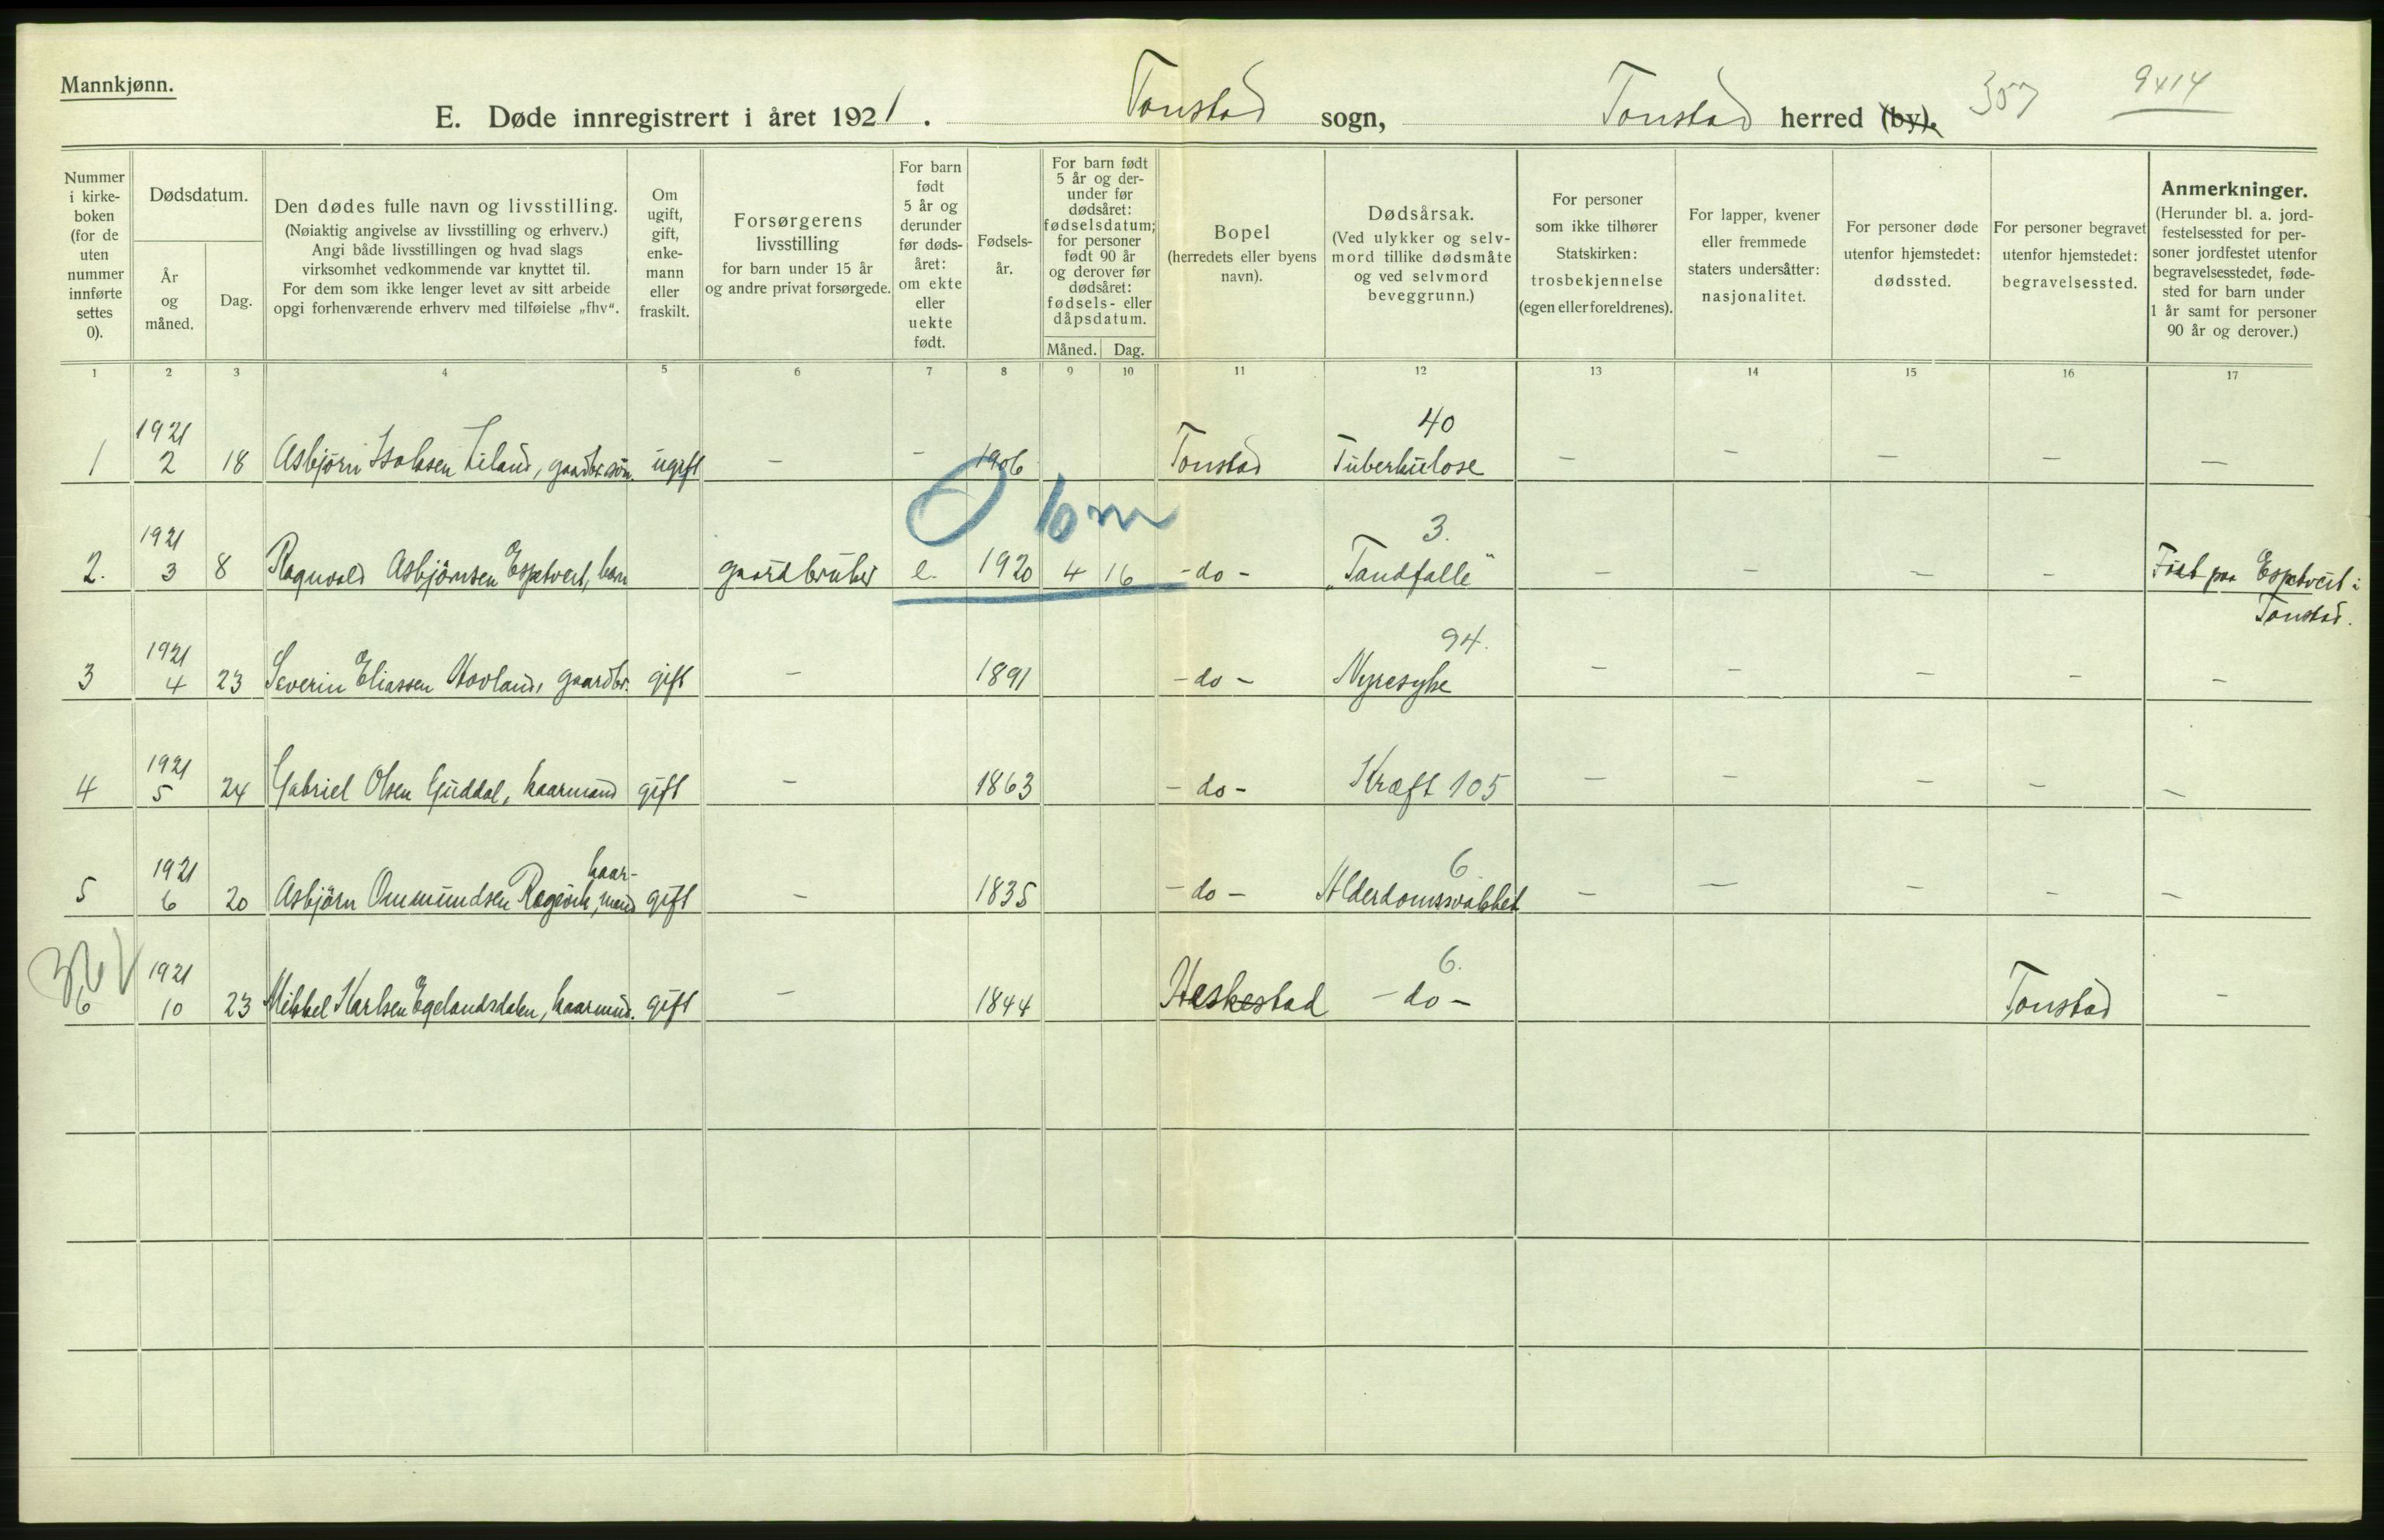 Mannkjønn.
E. Døde innregistrert i året 1921. Tonstad sogn, Tonstad herred (by). 357 9414
Nummer i kirkeboken (for de uten nummer innførte settes 0).
Dødsdatum.
År og måned.
Dag.
Den dødes fulle navn og livsstilling.
(Nøiaktig angivelse av livsstilling og erhverv.)
Angi både livsstillingen og hvad slags
virksomhet vedkommende var knyttet til.
For dem som ikke lenger levet av sitt arbeide
opgi forhenværende erhverv med tilføielse „fhv“.
Om ugift, gift, enkemann eller fraskilt.
Forsørgerens livsstilling
for barn under 15 år
og andre privat forsørgede.
For barn født 5 år og derunder før dødsåret: om ekte eller uekte født.
Fødselsår.
For barn født 5 år og derunder før dødsåret: fødselsdatum; for personer født 90 år og derover før dødsåret: fødsels- eller dåpsdatum.
Måned. Dag.
Bopel
(herredets eller byens navn).
Dødsårsak.
(Ved ulykker og selvmord tillike dødsmåte og ved selvmord beveggrunn.)
For personer som ikke tilhører Statskirken: trosbekjennelse (egen eller foreldrenes).
For lapper, kvener eller fremmede staters undersåtter: nasjonalitet.
For personer døde utenfor hjemstedet: dødssted.
For personer begravet utenfor hjemstedet: begravelsessted.
Anmerkninger.
(Herunder bl. a. jordfestelsessted for personer jordfestet utenfor begravelsesstedet, fødested for barn under 1 år samt for personer 90 år og derover.)
1 2 3 4 5 6 7 8 9 10 11 12 13 14 15 16 17
1921 40
1 2 18 Asbjørn Isaksen Liland, gaardbr.søn. ugift – – 1906 Tonstad Tuberkulose – – – – –
0 10 m
1921 3.
2. 3 8 Ragnvald Asbjørnsen Espetveit, barn gaardbruker e. 1920 4 16 - do - „Tandfalle“ – – – – Født paa Espetveit i
Tonstad.
1921 94.
3 4 23 Severin Eliassen Hovland, gaardbr. gift – 1891 - do - Nyresyke – – – – –
1921
4 5 24 Gabriel Olsen Guddal, kaarmand gift – 1863 - do - Kræft 105 – – – – –
1921 kaar- 6
5 6 20 Asbjørn Ommundsen Røgevik, mand gift – 1835 - do - Alderdomssvakhet – – – – –
1921 6.
6 10 23 Mikkel Karlsen Egelandsdalen, kaarmnd. gift – 1844 Heskestad - do - Tonstad –